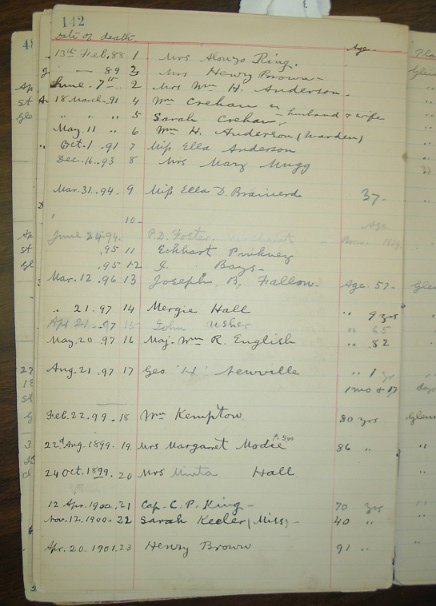 142
date of death Age
13th Feb. 88 1 Mrs Alonzo Ring.
" — 89 2 Mrs Henry Brown
June 7th 2 Mrs Wm H. Anderson.
18 March. 91 4 Wm Crehan
" " " 5 Sarah Crehan husband & wife
May. 11 " 6 Wm H. Anderson (Warden)
Oct. 1. 91 7 Miss Ella Anderson
Dec. 16. 93 8 Mrs Mary Mugg
Mar. 31. 94. 9 Miss Ella D. Brainerd 37.
10 Age
June 24 94. P.D. Foster.
.95 11 Eckhart Pinkney
.95 12 J. Bays
Mar. 12. 96 13 Joseph B. Fallow Age 57
" 21. 97 14 Mergie Hall " 9 yrs
Apl 21. 97 15 John Usher " 65
May. 20. 97 16 Maj. Wm R. English " 82
Aug. 21. 97 17 Geo. H. Newville " 1 yr
1 mo & 17 days
Feb. 22. 99. 18 Wm Kempton 80 yrs
22nd Aug. 1899. 19 Mrs Margaret Modie 86 "
24 Oct. 1899. 20 Mrs Minta Hall
12 Apr. 1900. 21 Cap. C. P. King 70 yrs
Nov. 12. 1900. 22 Sarah Keeler (Miss) 40 "
Apr. 20. 1901. 23 Henry Brown 91 "